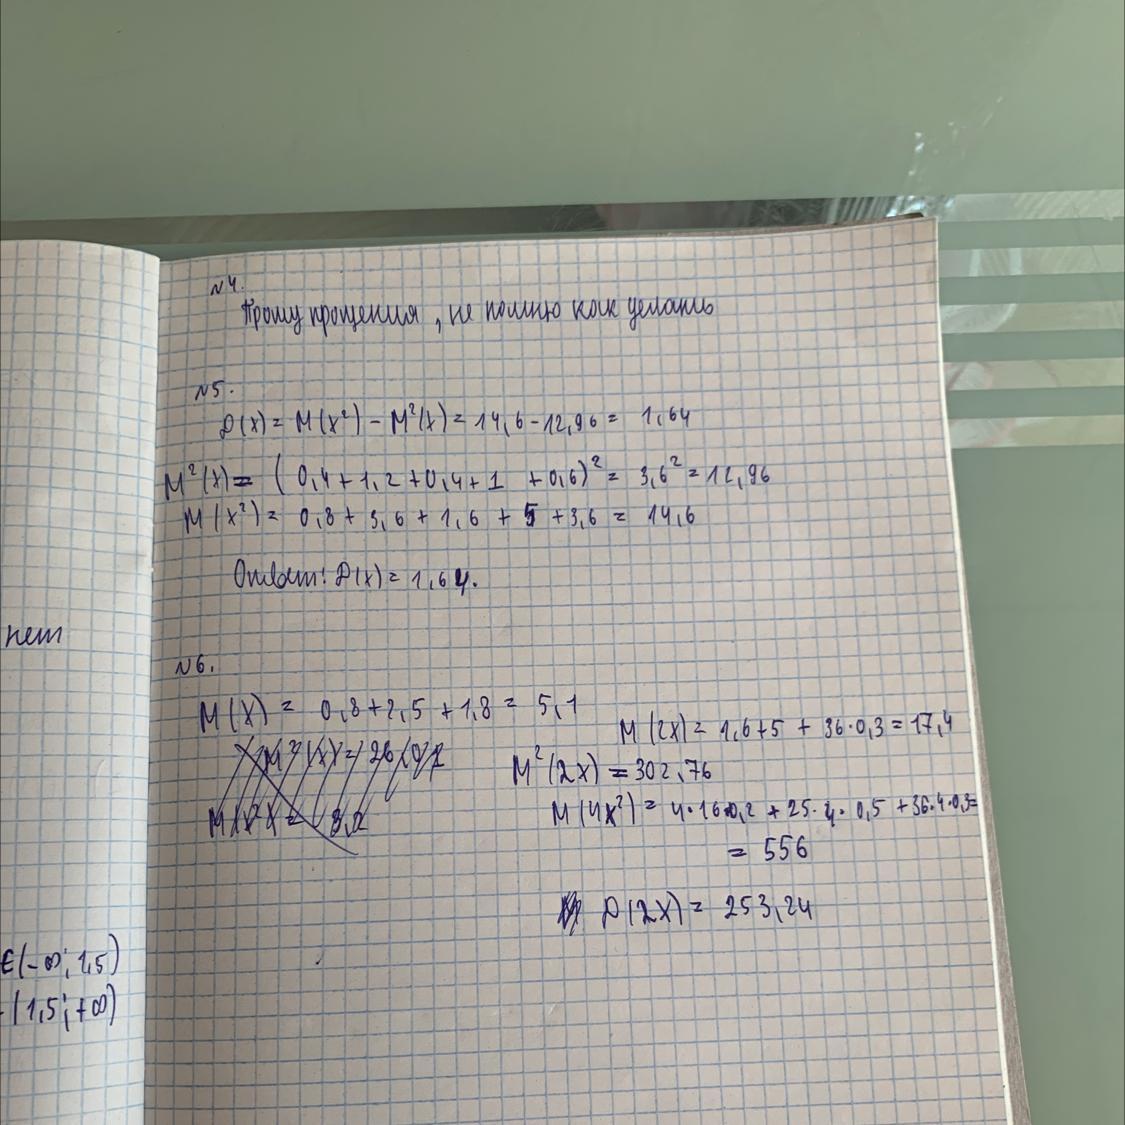 нет
∈(-∞; 1,5)
(1,5; +∞)
N4.
Прошу прощения, не помню как делать
N5.
D(X) = M(X²) - M²(X) = 14,6 - 12,96 = 1,64
M²(X) = (0,4 + 1,2 + 0,4 + 1 + 0,6)² = 3,6² = 12,96
M(X²) = 0,8 + 3,6 + 1,6 + 5 + 3,6 = 14,6
Ответ: D(X) = 1,64.
N6.
M(X) = 0,8 + 2,5 + 1,8 = 5,1
M(2X) = 1,6 + 5 + 36·0,3 = 17,4
M²(2X) = 302,76
M(4X²) = 4·16·0,2 + 25·4·0,5 + 36·4·0,3 =
= 556
D(2X) = 253,24